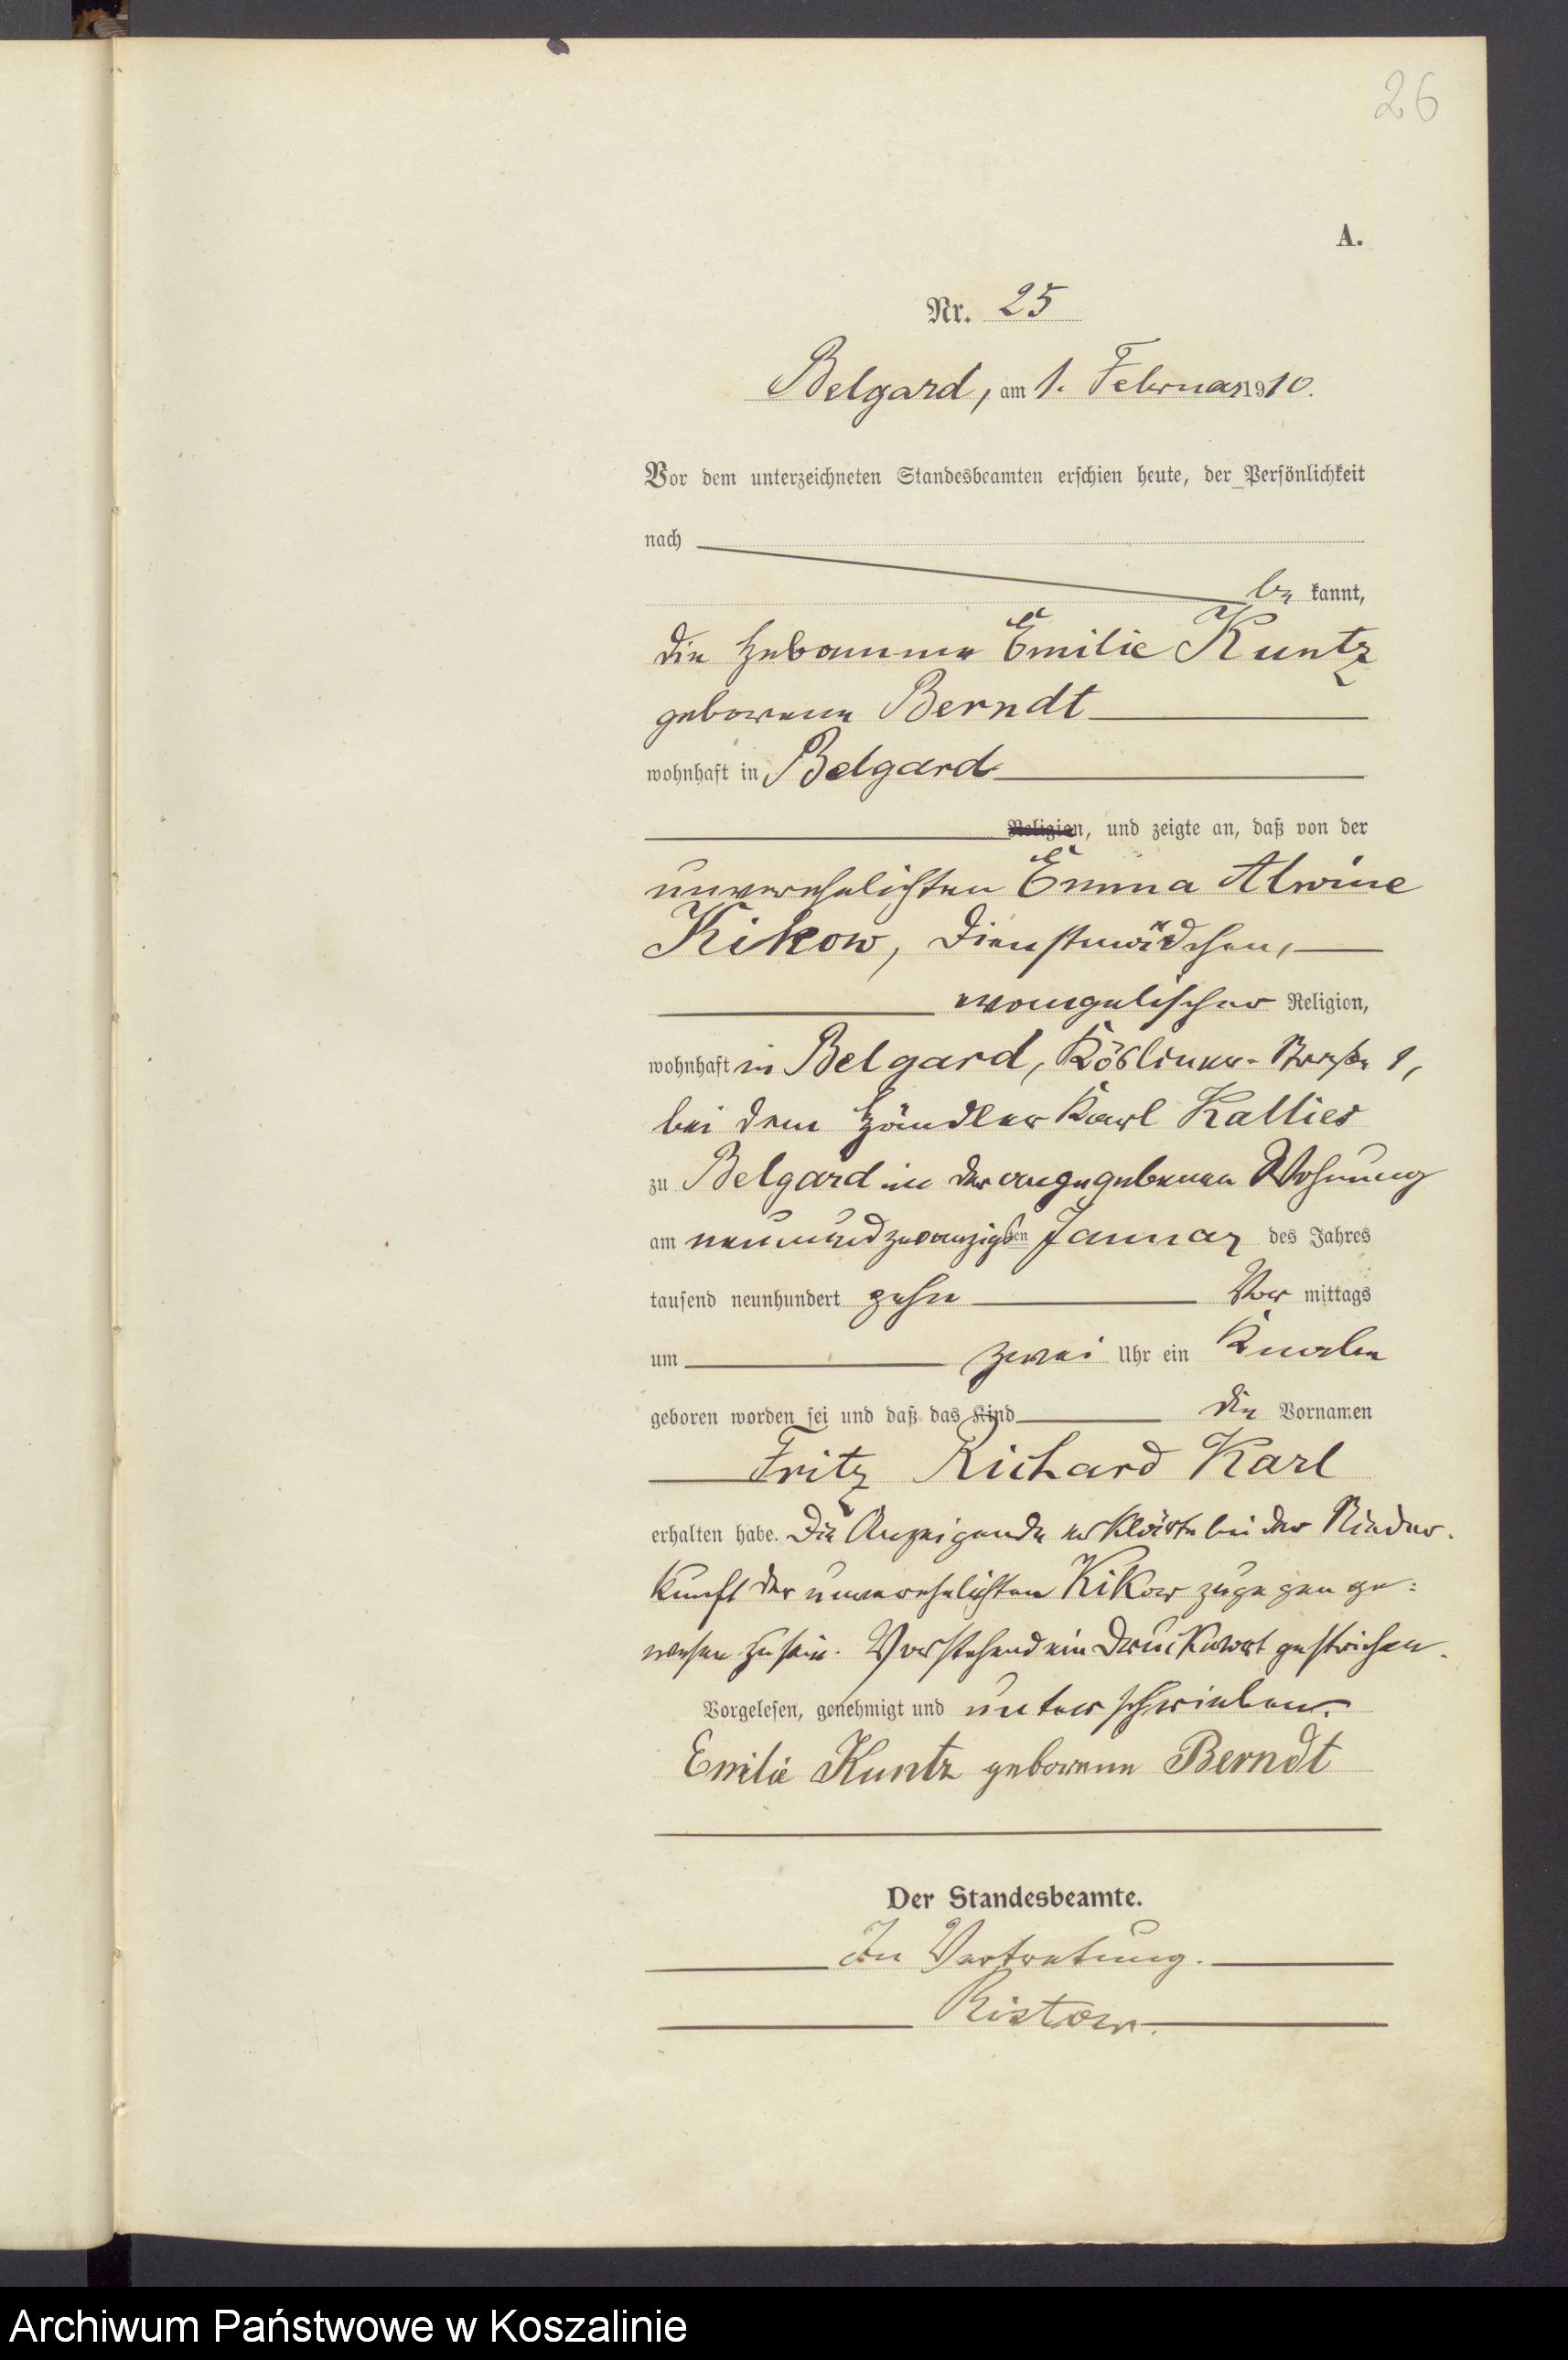 26
A.
Nr. 25
Belgard, am 1. Februar 1910.
Vor dem unterzeichneten Standesbeamten erschien heute, der Persönlichkeit
nach
be kannt,
die Hebamme Emilie Kuntz
geborene Berndt
wohnhaft in Belgard
Religion, und zeigte an, daß von der
unverehelichten Emma Alwine
Kikow, Dienstmädchen,
evangelischer Religion,
wohnhaft in Belgard, Kösliner-Straße 1,
bei dem Händler Karl Kallies
zu Belgard in der angegebenen Wohnung
am neunundzwanzigsten Januar des Jahres
tausend neunhundert zehn Vor mittags
um zwei Uhr ein Knabe
geboren worden sei und daß das Kind die Vornamen
Fritz Richard Karl
erhalten habe. Die Anzeigende erklärte bei der Nieder-
kunft der unverehelichten Kikow zugegen ge-
wesen zu sein. Vorstehend ein Druckwort gestrichen.
Vorgelesen, genehmigt und unterschrieben.
Emilie Kuntz geborene Berndt
Der Standesbeamte.
In Vertretung.
Ristow.
Archiwum Państwowe w Koszalinie